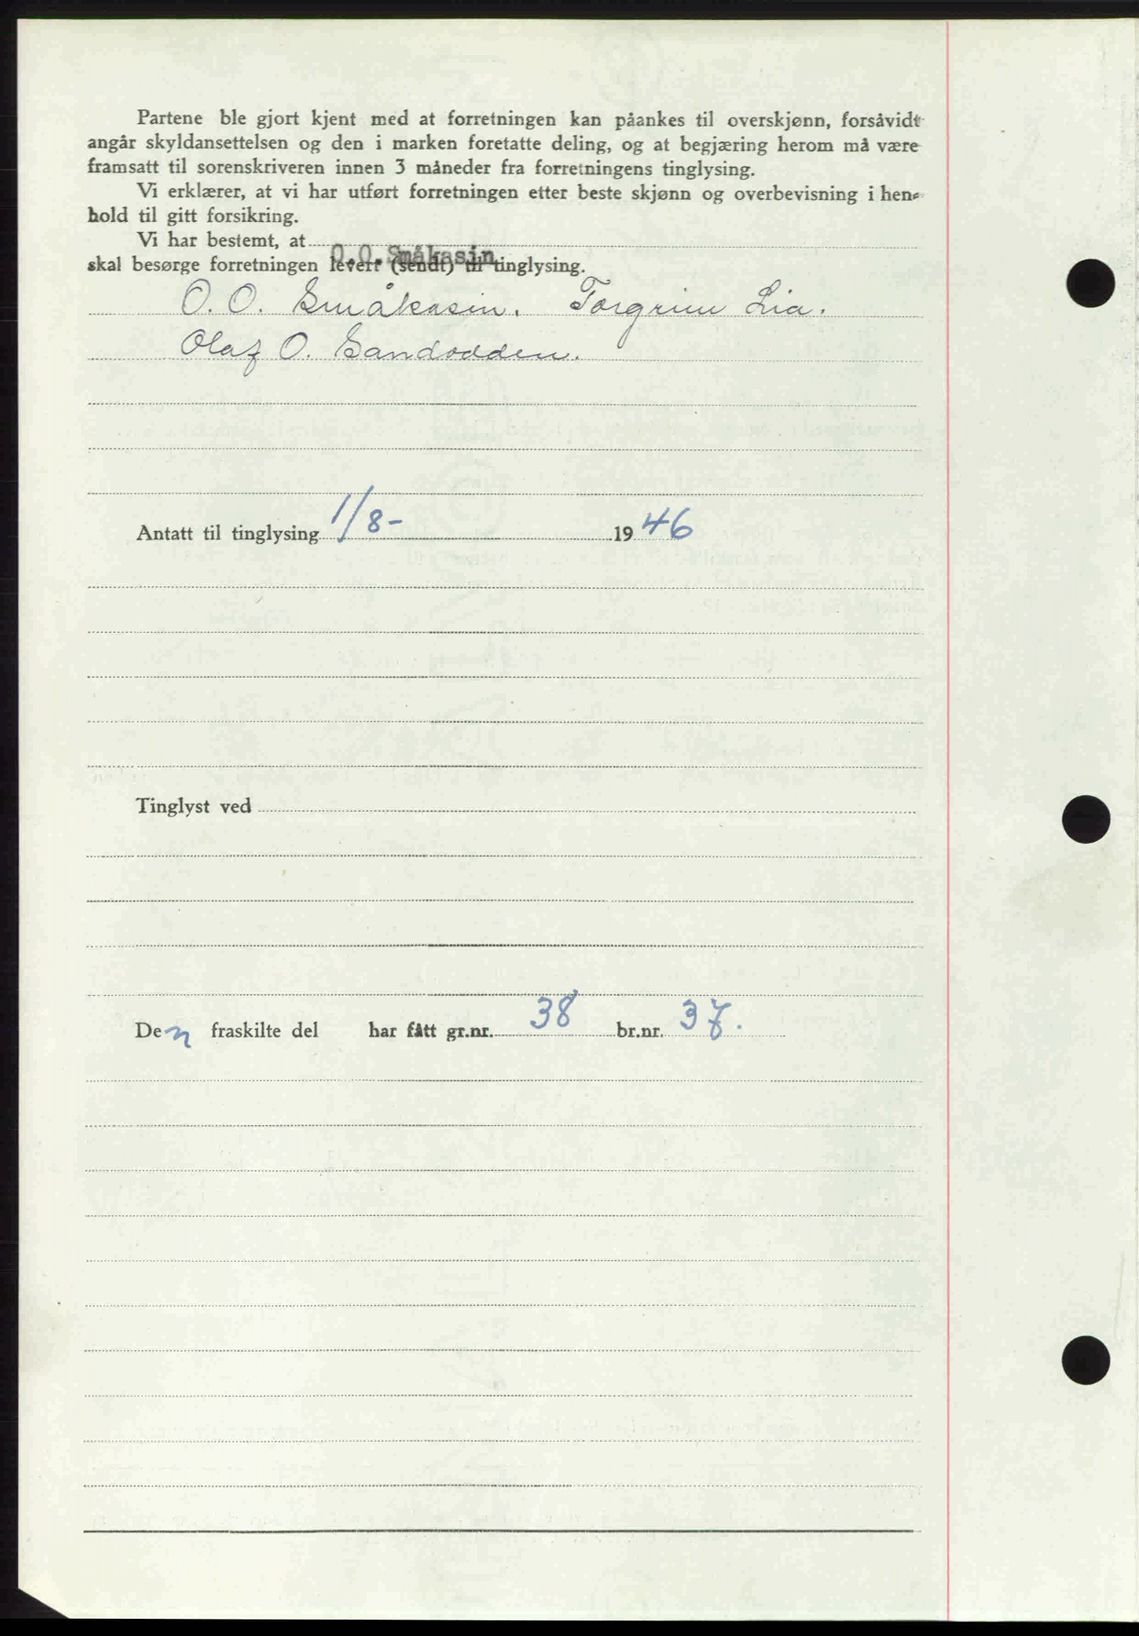 Partene ble gjort kjent med at forretningen kan påankes til overskjønn, forsåvidt
angår skyldansettelsen og den i marken foretatte deling, og at begjæring herom må være
framsatt til sorenskriveren innen 3 måneder fra forretningens tinglysing.
Vi erklærer, at vi har utført forretningen etter beste skjønn og overbevisning i hen-
hold til gitt forsikring.
Vi har bestemt, at
O.O. Småkasin
skal besørge forretningen levert (sendt) til tinglysing.
O. O. Småkasin. Torgrim Lia.
Olaf O. Sandodden.
Antatt til tinglysing 1/8- 1946
Tinglyst ved
Den fraskilte del har fått gr.nr. 38 br.nr. 37.